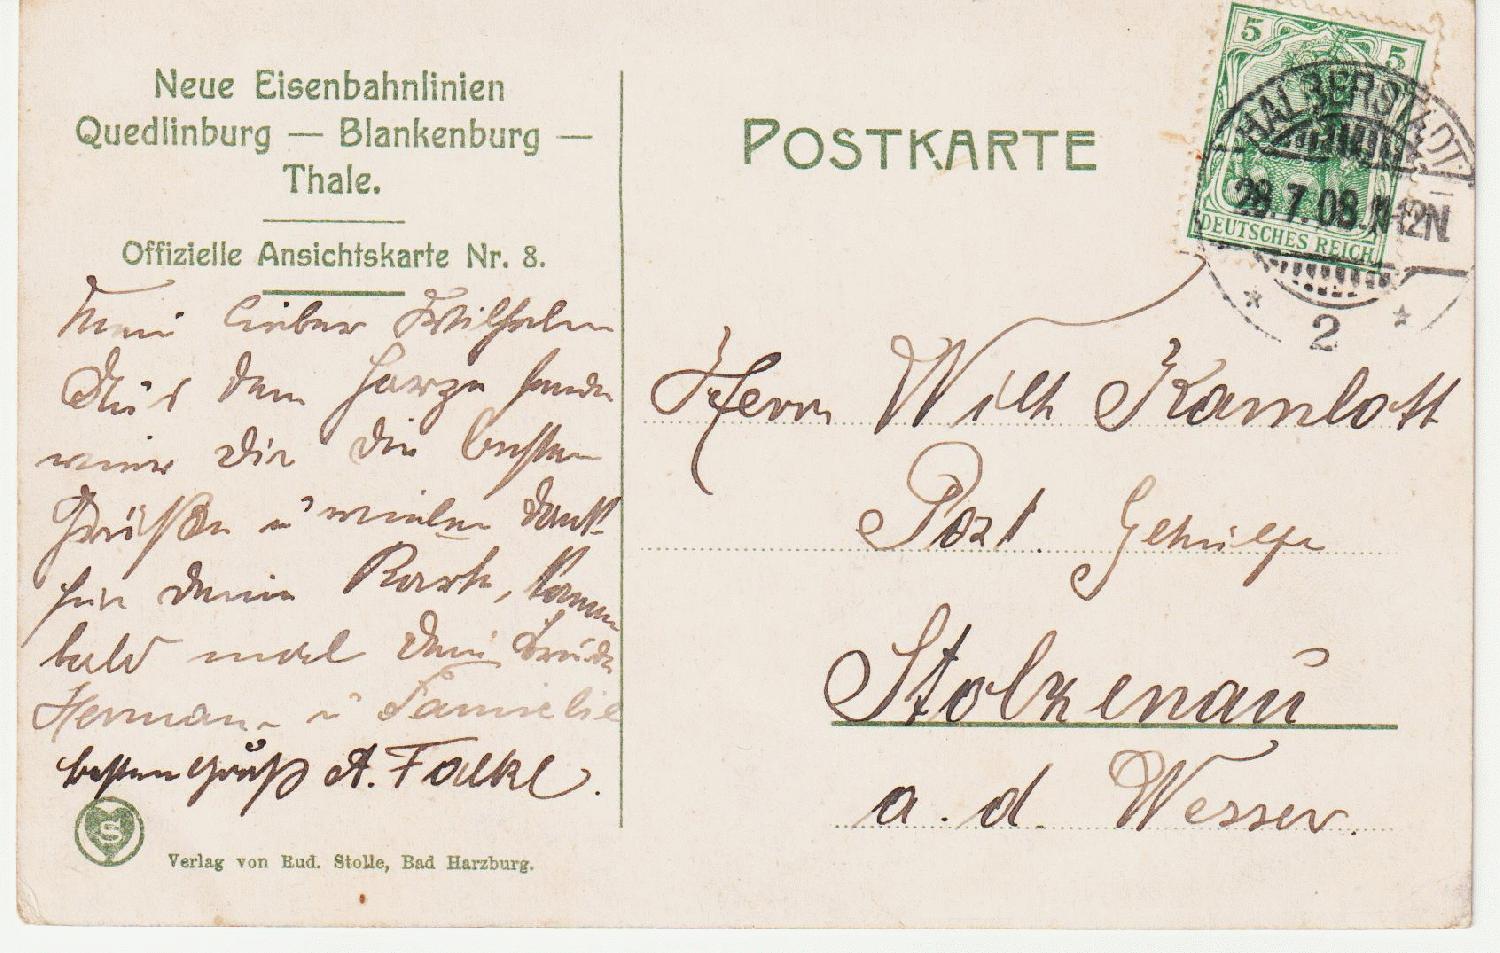 Neue Eisenbahnlinien
Quedlinburg — Blankenburg —
Thale.
Offizielle Ansichtskarte Nr. 8.
Mein lieber Wilhelm
Aus dem Harze sende
wir Dir die besten
Grüße u vielen Dank
für deine Karte, komme
bald mal Dein Bruder
Herman u Familie
besten Gruß A. Falke.
S
Verlag von Rud. Stolle, Bad Harzburg.
POSTKARTE
5 5
DEUTSCHES REICH
HALBERSTADT
28.7.08. 11-12N.
* 2 *
Herrn Wilh Kamlott
Post Gehülfe
Stolzenau
a. d. Wesser.